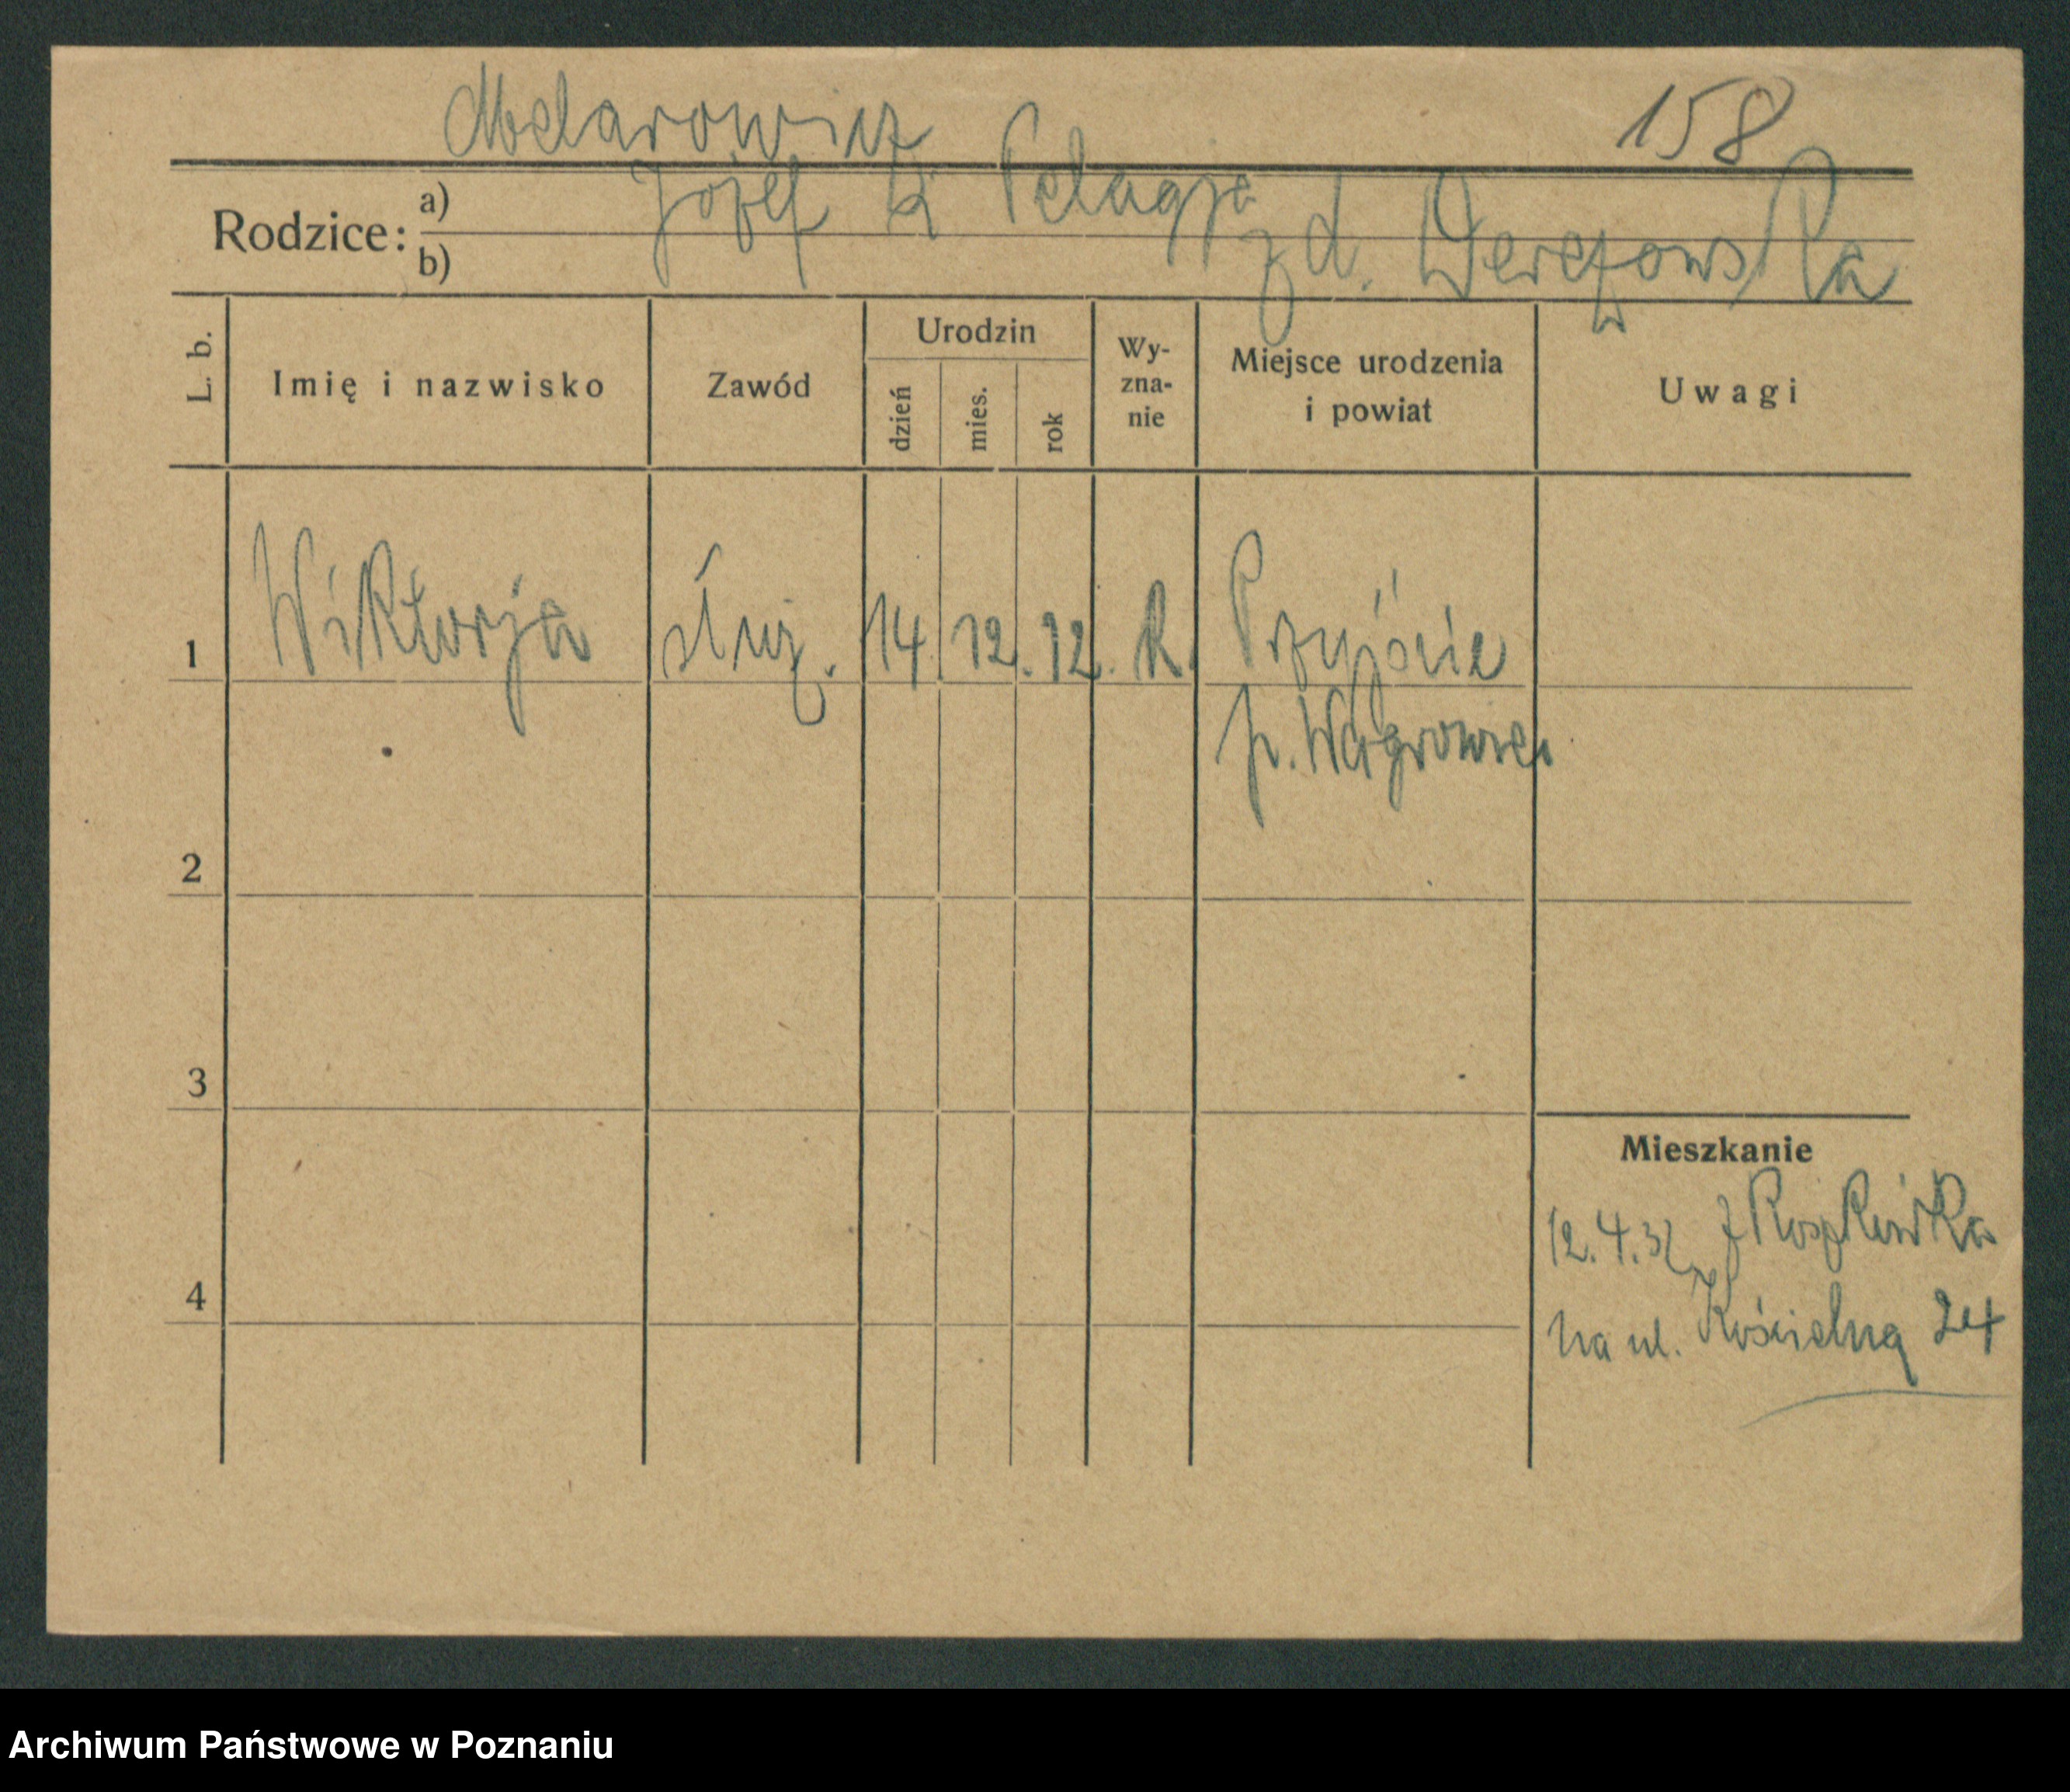 Abelarowicz 158
Rodzice: a) Józef i Pelagja
b) zd. Derezowska
L. b. Imię i nazwisko Zawód Urodzin dzień mies. rok Wy-zna-nie Miejsce urodzenia i powiat Uwagi
1 Wiktorja służ. 14 12. 12. R. Przyjście
p. Wągrowiec
2
3
Mieszkanie
12.4.32 z Roszkówka
4
na ul. Kościelną 24
Archiwum Państwowe w Poznaniu